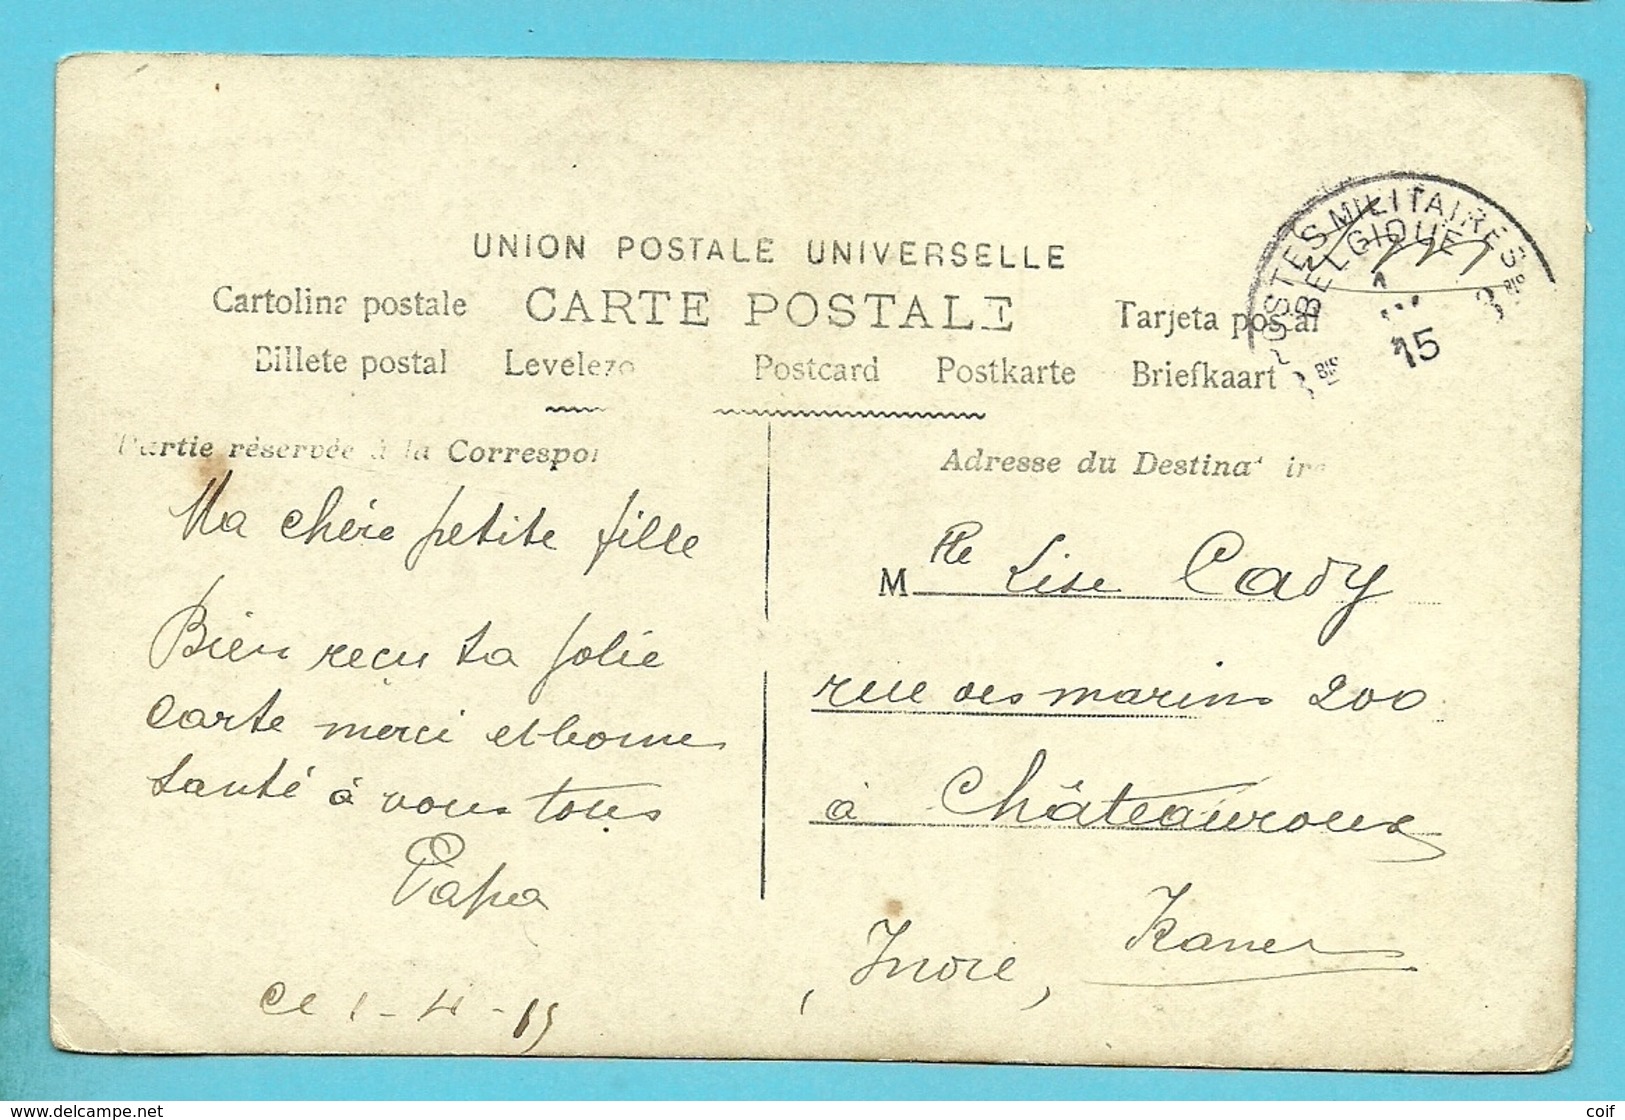 UNION POSTALE UNIVERSELLE
Cartolina postale CARTE POSTALE Tarjeta postal
Billete postal Levelezo Postcard Postkarte Briefkaart
POSTES MILITAIRES
BELGIQUE
1
15
3 BIS
3 BIS
Partie réservée à la Correspon
Adresse du Destina ire
Ma chère petite fille
Bien reçu ta jolie
carte merci et bonne
santé à vous tous
Papa
Ce 1-4-15
Mlle Lise Cady
rue des marins 200
à Châteauroux
(Indre)
delcampe.net
coif